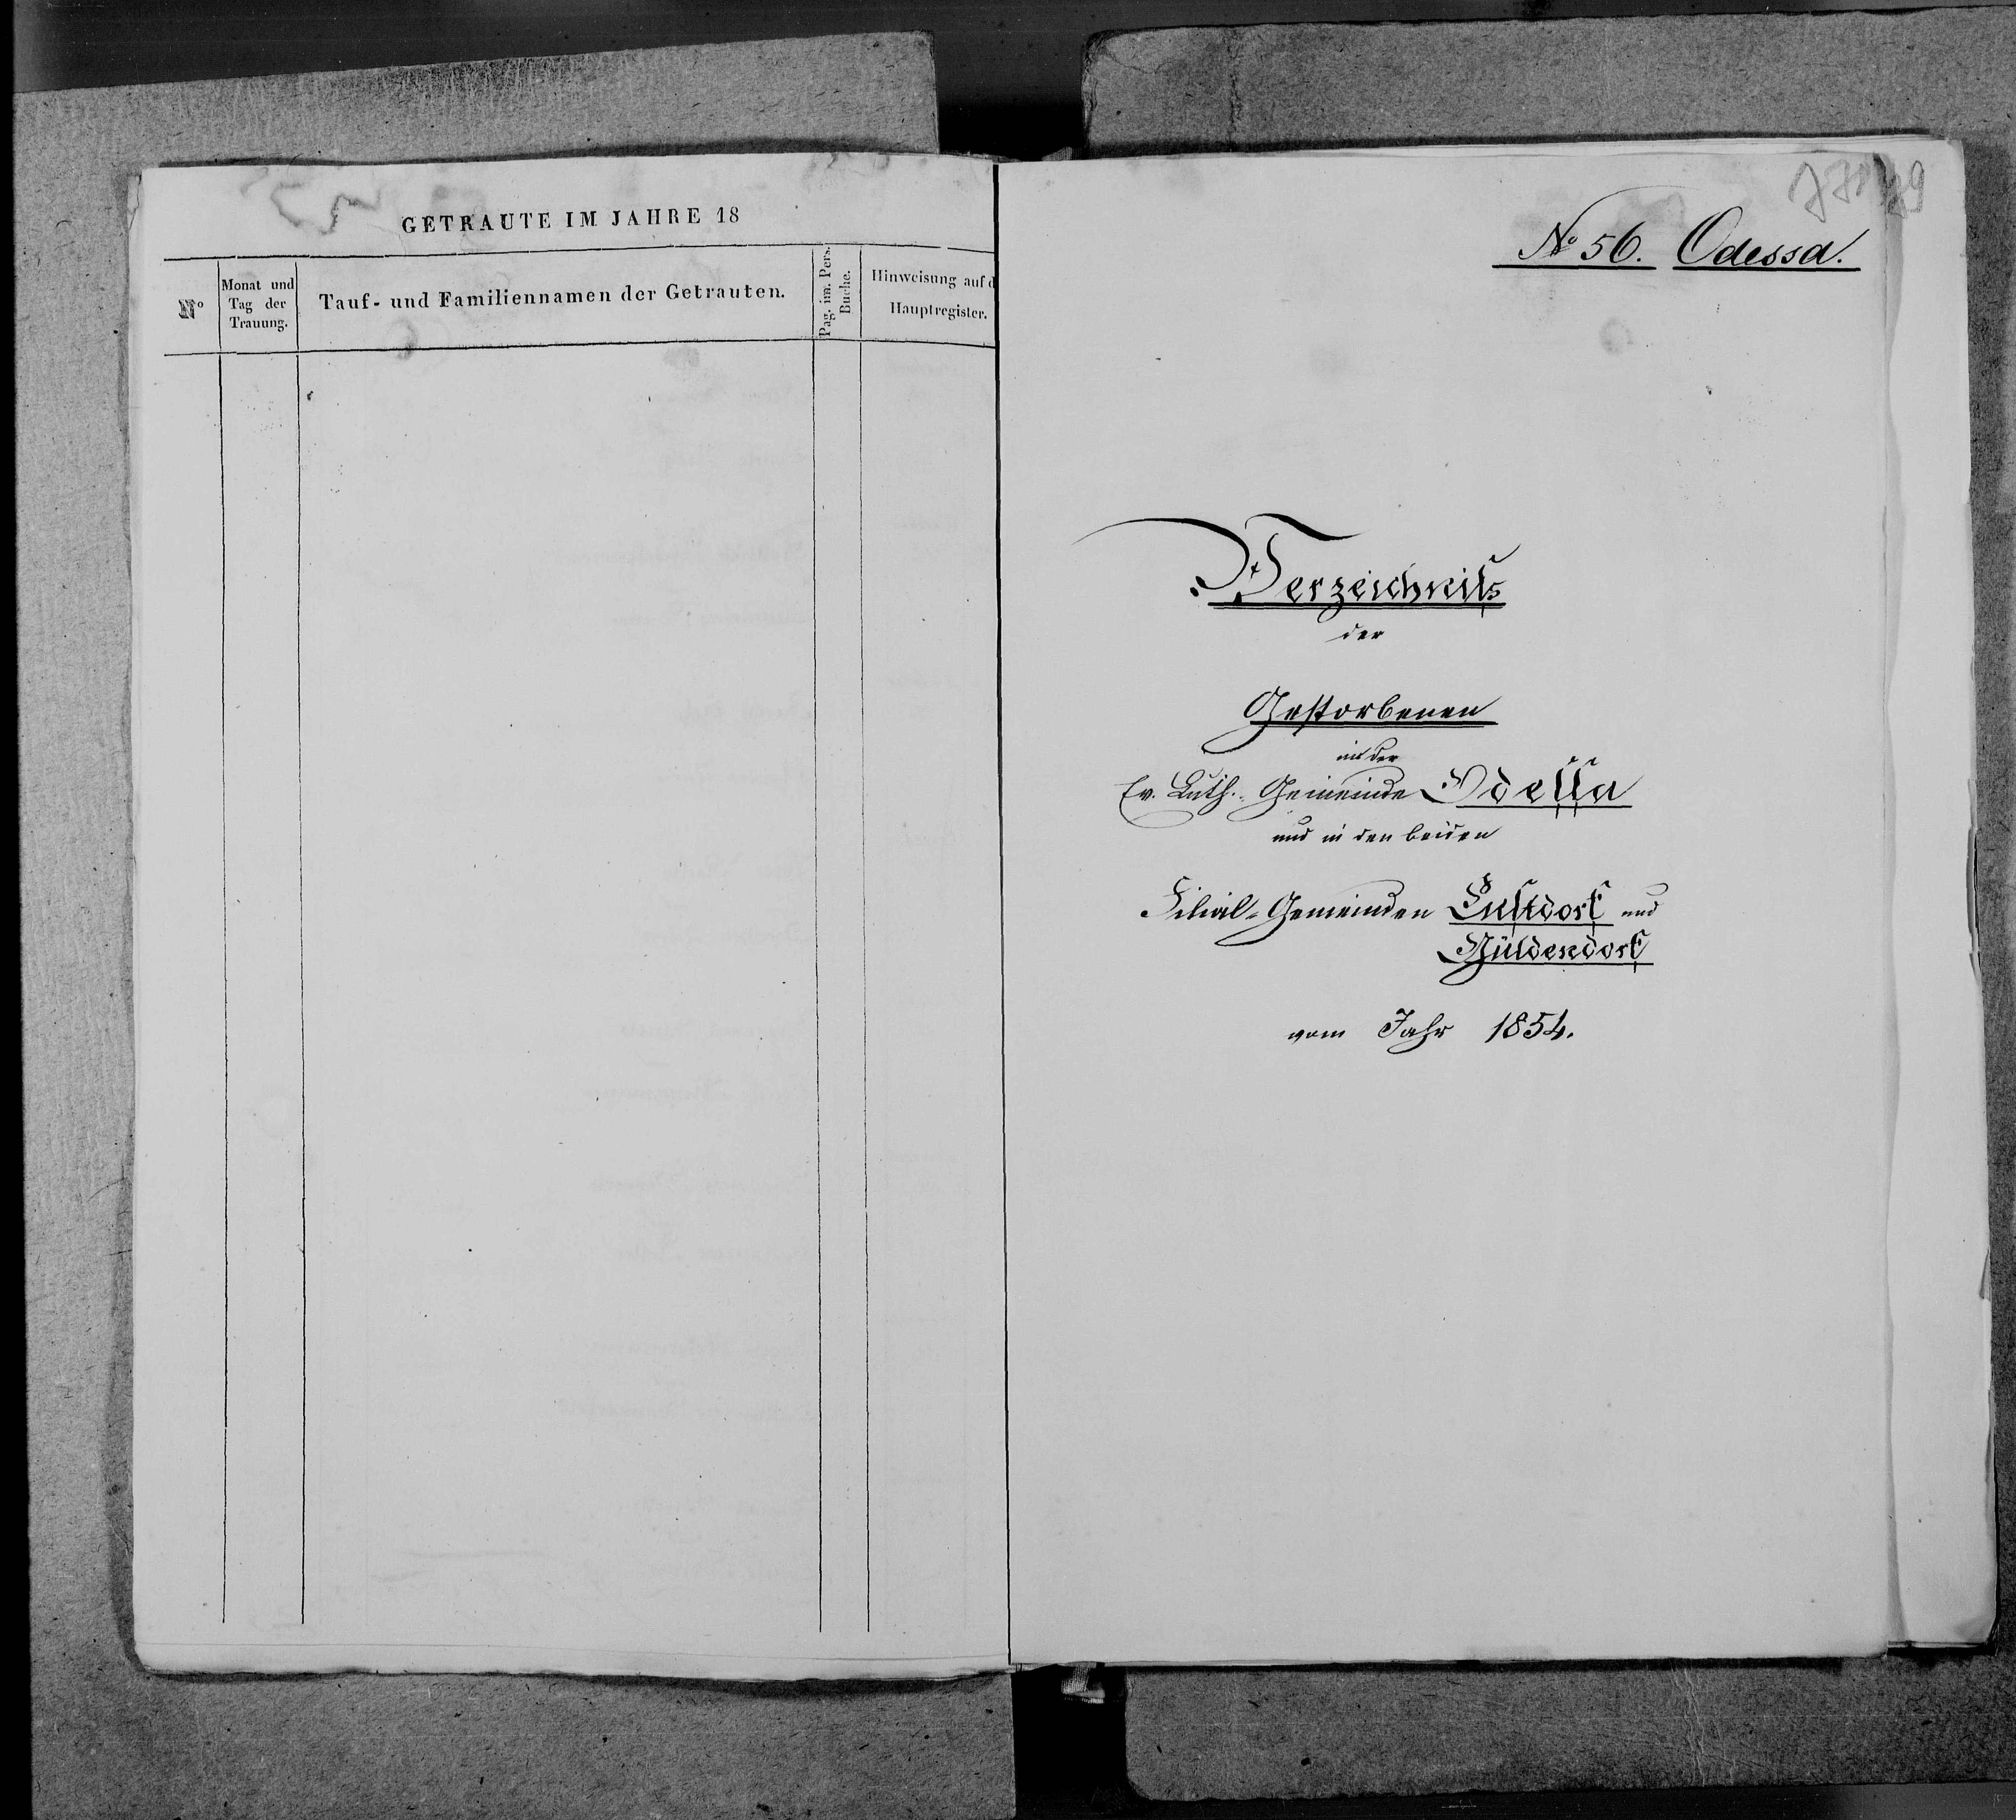 GETRAUTE IM JAHRE 18
Nº
Monat und
Tag der
Trauung.
Tauf- und Familiennamen der Getrauten.
Pag. im. Pers.
Buche.
Hinweisung auf d
Hauptregister.
№ 56. Odessa.
Verzeichniſs
der
Gestorbenen
in der
Ev. Luth. Gemeinde Odeſſa
und in den beiden
Filial-Gemeinden Luſtdorf und
Güldendorf
vom Jahr 1854.